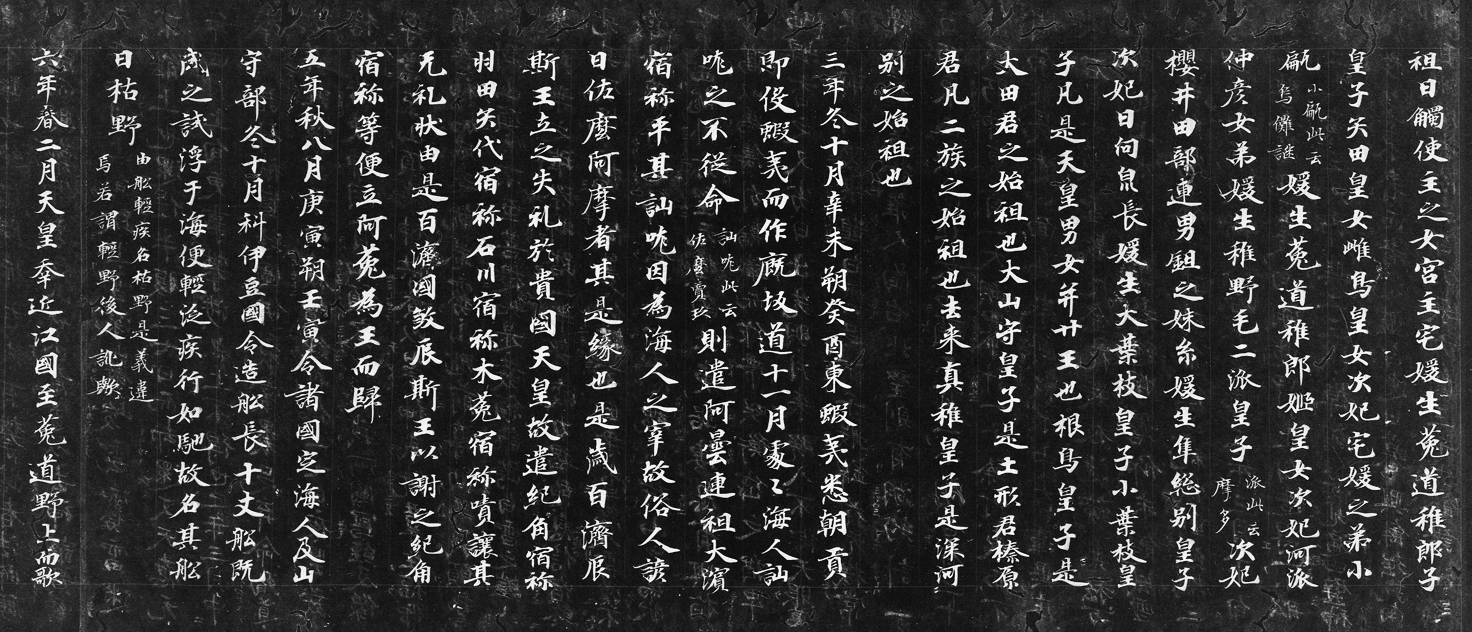 祖日觸使主之女宮主宅媛生菟道稚郎子
皇子矢田皇女雌鳥皇女次妃宅媛之弟小
甂小甂此云烏儺謎媛生菟道稚郎姬皇女次妃河派
仲彥女弟媛生稚野毛二派皇子派此云摩多次妃
櫻井田部連男鉏之妹糸媛生隼総別皇子
次妃日向泉長媛生大葉枝皇子小葉枝皇
子凡是天皇男女并廿王也根鳥皇子是
大田君之始祖也大山守皇子是土形君榛原
君凡二族之始祖也去来真稚皇子是深河
別之始祖也
三年冬十月辛未朔癸酉東蝦夷悉朝貢
即伇蝦夷而作廐坂道十一月處〻海人訕
哤之不從命訕哤此云佐麼賣玖則遣阿曇連祖大濱
宿祢平其訕哤因為海人之宰故俗人諺
曰佐麼阿摩者其是緣也是歲百濟辰
斯王立之失礼於貴國天皇故遣紀角宿祢
羽田矢代宿祢石川宿祢木菟宿祢嘖讓其
无礼狀由是百濟國敘辰斯王以謝之紀角
宿祢等便立阿菟為王而歸
五年秋八月庚寅朔壬寅令諸國定海人及山
守部冬十月科伊豆國令造舩長十丈舩既
成之試浮于海便輕泛疾行如馳故名其舩
曰枯野由舩輕疾名枯野是義違焉若謂輕野後人訛歟
六年春二月天皇幸近江國至菟道野上而歌